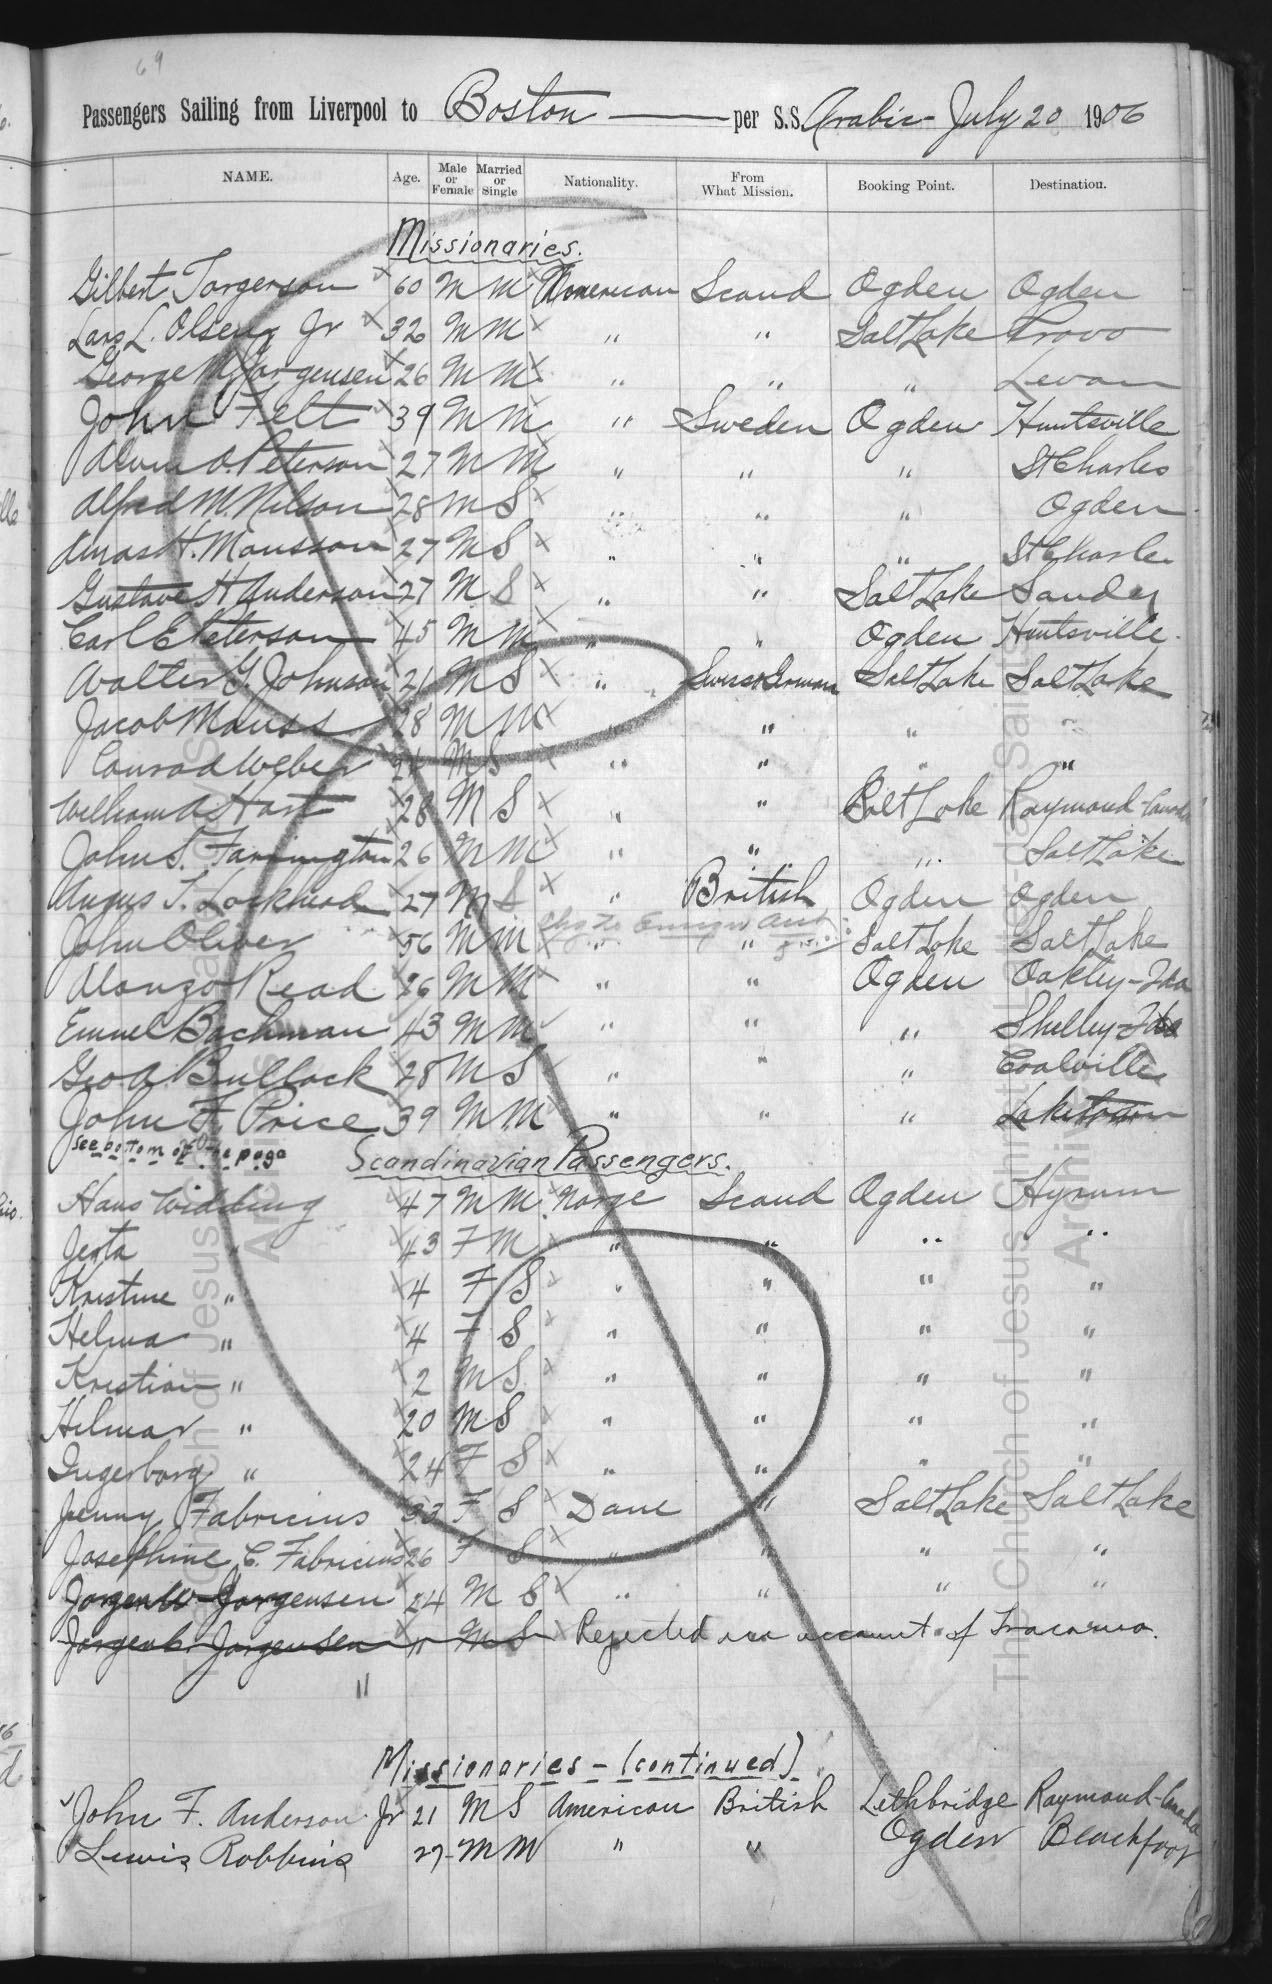 69
Passengers Sailing from Liverpool to Boston — per S.S. Arabic July 20 1906
NAME. Age. Male or Female Married or Single Nationality. From What Mission. Booking Point. Destination.
Missionaries.
Gilbert Torgerson × 60 M M × American Scand Ogden Ogden
Lars L. Olsen Jr × 32 M M × " " Salt Lake Provo
George M Jorgensen × 26 M M × " " " Levan
John Felt × 39 M M × " Sweden Ogden Huntsville
Alvin A. Peterson × 27 M M × " " " St Charles
Alfred M. Nelson × 28 M S × " " " Ogden
Amos H. Monsson × 27 M S × " " " St Charles
Gustave H Anderson × 27 M S × " " Salt Lake Sandy
Carl E Peterson × 45 M M × " " Ogden Huntsville
Walter G. Johnson × 21 M S × " Swiss & German Salt Lake Salt Lake
Jacob Mauss × 28 M M × " " " "
Conrad Weber × M S × " " " "
William A Hart × 28 M S × " " Salt Lake Raymond-Canada
John S. Farrington × 26 M M × " " " Salt Lake
Angus T. Lockhead × 27 M S × " British Ogden Ogden
John Oliver × 56 M M " " Salt Lake Salt Lake
Alonzo Read × 26 M M × " " Ogden Oakley-Ida
Emuel Bachman × 43 M M " " " Shelley-Ida
Geo A Bullock × 28 M S " " " Coalville
John F. Price 39 M M " " " Laketown
see bottom of the page
Scandinavian Passengers.
Hans Widding × 47 M M × Norge Scand Ogden Hyrum
Jerta " × 43 F M × " " " "
Kristine " × 4 F S × " " " "
Helma " × 4 F S × " " " "
Kristian " × 2 M S × " " " "
Hilmar " × 20 M S × " " " "
Ingerborg " × 24 F S × " " " "
Jenny Fabricius × 33 F S × Dane " Salt Lake Salt Lake
Josephine C. Fabricius × 26 F S × " " " "
Jorgen W Jorgensen × 24 M S × " " " "
Jorgen C. Jorgensen × 11 M S × Rejected on account of Tracoma.
11
Missionaries - (continued)
John F. Anderson Jr 21 M S American British Lethbridge Raymond-Canada
Lewis Robbins 27 M M " " Ogden Blackfoot
The Church of Jesus Christ of Latter-day Saints
Archives